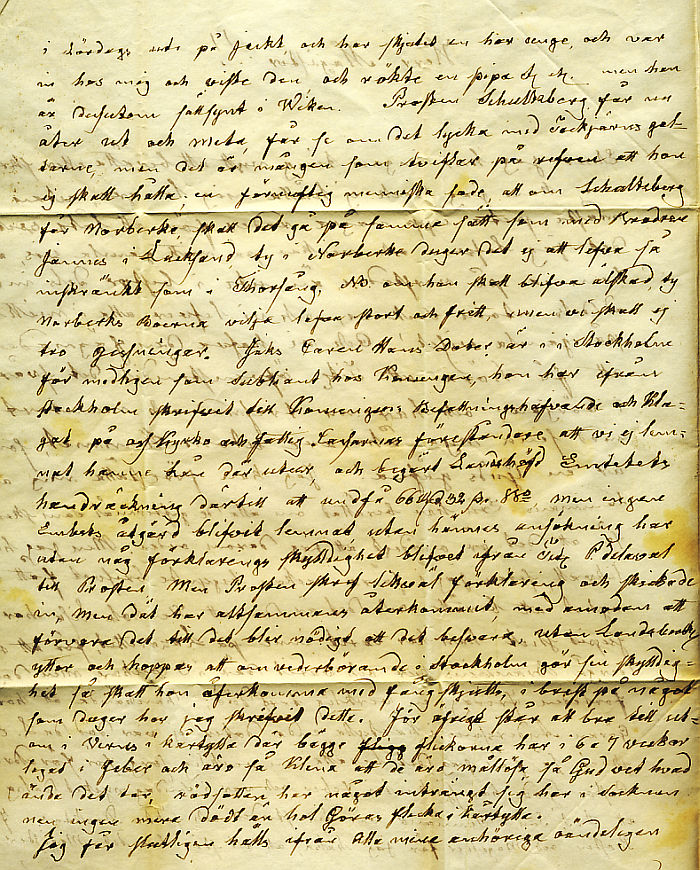 i Lördags ute på jackt och har skjutit en har unge, och var
in hos mig och viste den och rökte en pipa &c &c. men han
är desutom sällsynt i Wiken. Prosten Schultzberg får nu
åter ut och meta, får se om det lycka med
men det är mången som tviflar på att han
ej skall hålla. en förnuftig menniska sade, att om Schultzberg
får Norberke skall det gå på samma sätt som med
Jannes i Lecksand ty i Norberke duger det ej att lefva så
inskränkt som i Thorsång, NB om han skall blifva älskad, ty
Norberks Boerna vilja lefva stort och fritt, men vi skall ej
tro gissningar. Jaks Caren Hans Dotter är i Stockholm
för modligen som hos Konungen, hon har ifrån
Stockholm skrifvit till Konungens Befallningshafvande och Kla-
gat på och Kyrko och fattig Cassornas föreståndare, att vi ej lem-
nat henne lån där utur, och begärt Landshöfd Embetets
handräckning därtill att undfå 66 Rd 32 s. Bco, men ingen
Embets åtgärd blifvit lemnat, utan hännes ansökning har
utan någ förklarings skylldighet blifvit ifrån
till Prosten. Men Prosten skref likväl förklaring och skickade
in, Men dät har altsammans återkommit, med anmodan att
förvara det till det blir nödigt att det besvara, utan Landshöfd
yttor och hoppas att om vederbörande i Stockholm gör sin skylldig-
het så skall hon återkomma med fångskjutts, i brist på något
som duger har jag skrifvit dette. För öfrigt står alt bra till ut-
om i Vernes i Kårtylla där bägge flickorna har i 6 a 7 veckor
legat i feber och äro så klena att de äro mållösa så Gud vet hvad
ände det tar, rödsotten har något inträngt sig här i socknen
men ingen mera dödt än hol Göras flicka i Kårtylla.
Jag får slutligen hälls ifrån alla mina anhöriga oändeligen